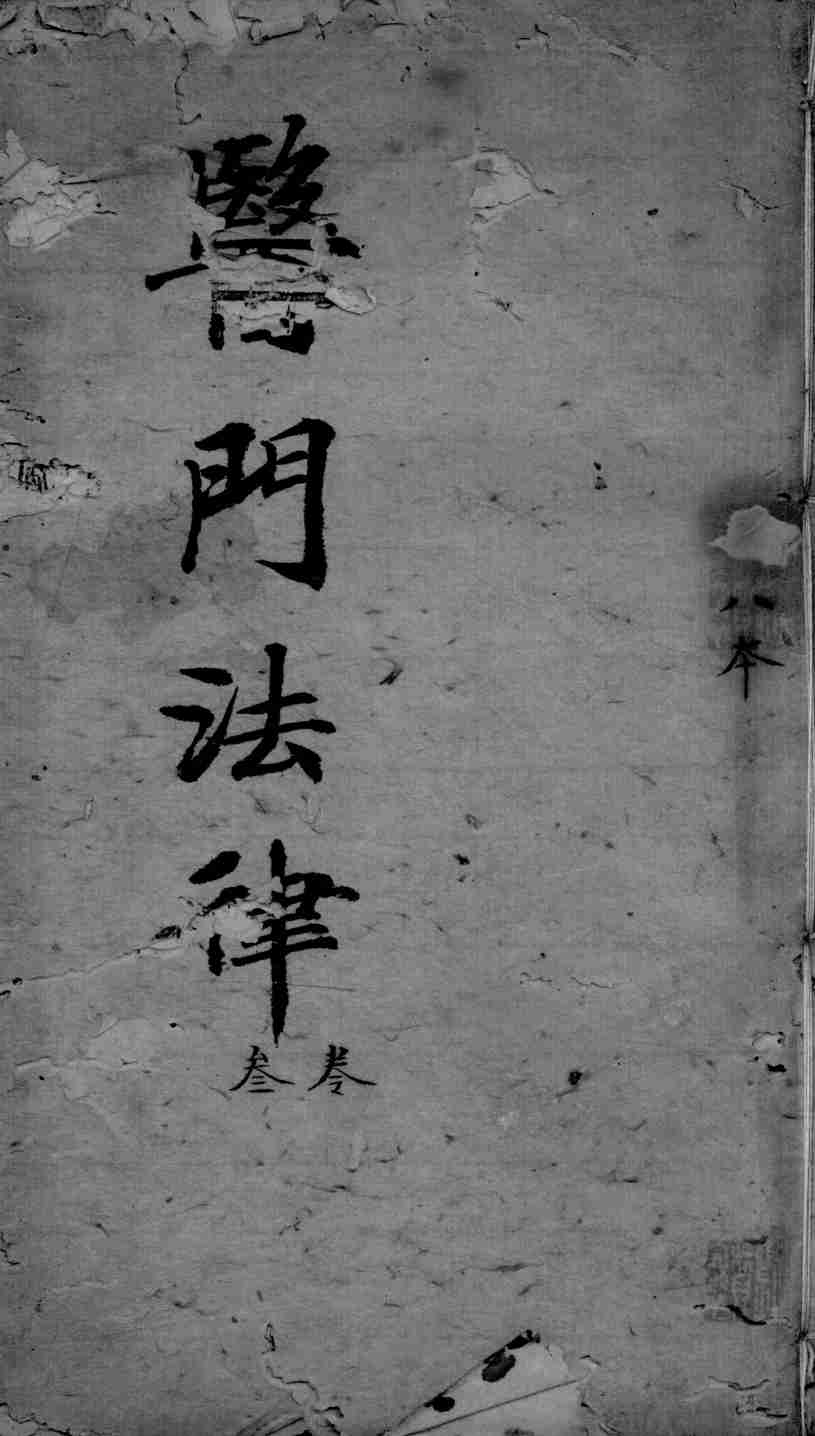 八本
醫門法律
卷
叁